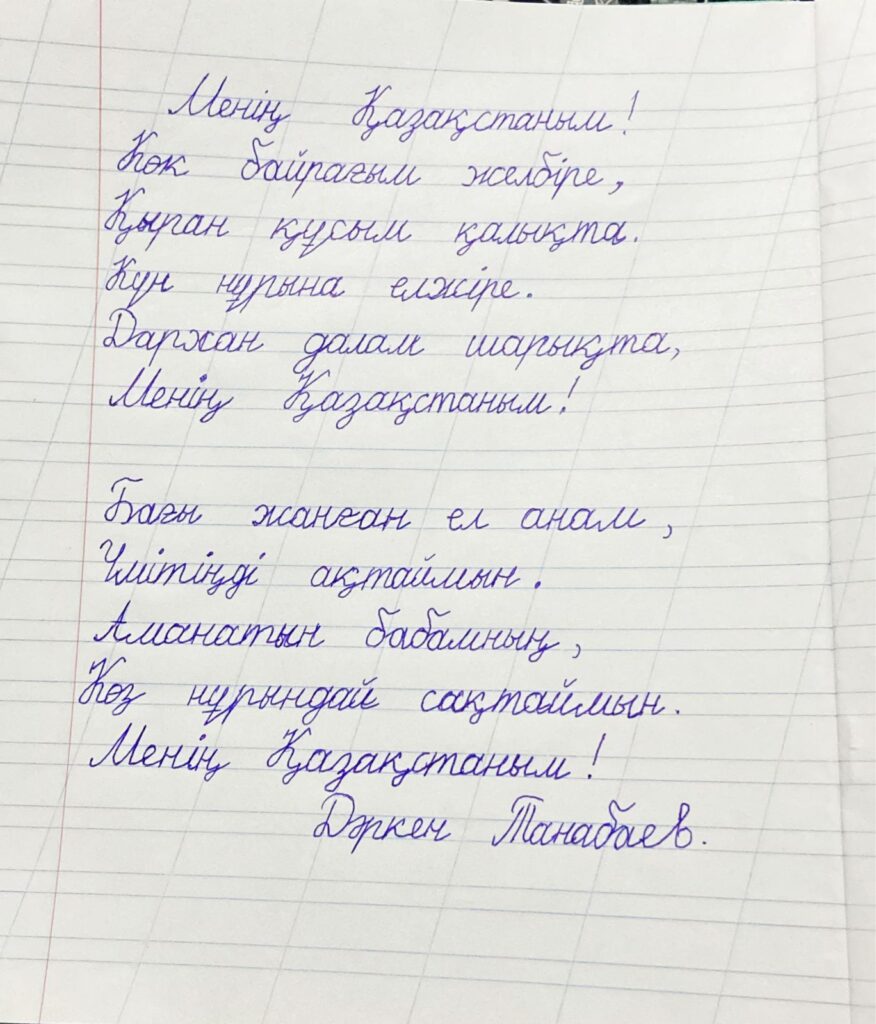 Менің Қазақстаным!
Көк байрағым желбіре,
Қыран құсым қалықта.
Күн нұрына елжіре.
Дархан далам шарықта,
Менің Қазақстаным!
Бағы жанған ел анам,
Үмітіңді ақтаймын.
Аманатын бабамның,
Көз нұрындай сақтаймын.
Менің Қазақстаным!
Дәркен Танабаев.